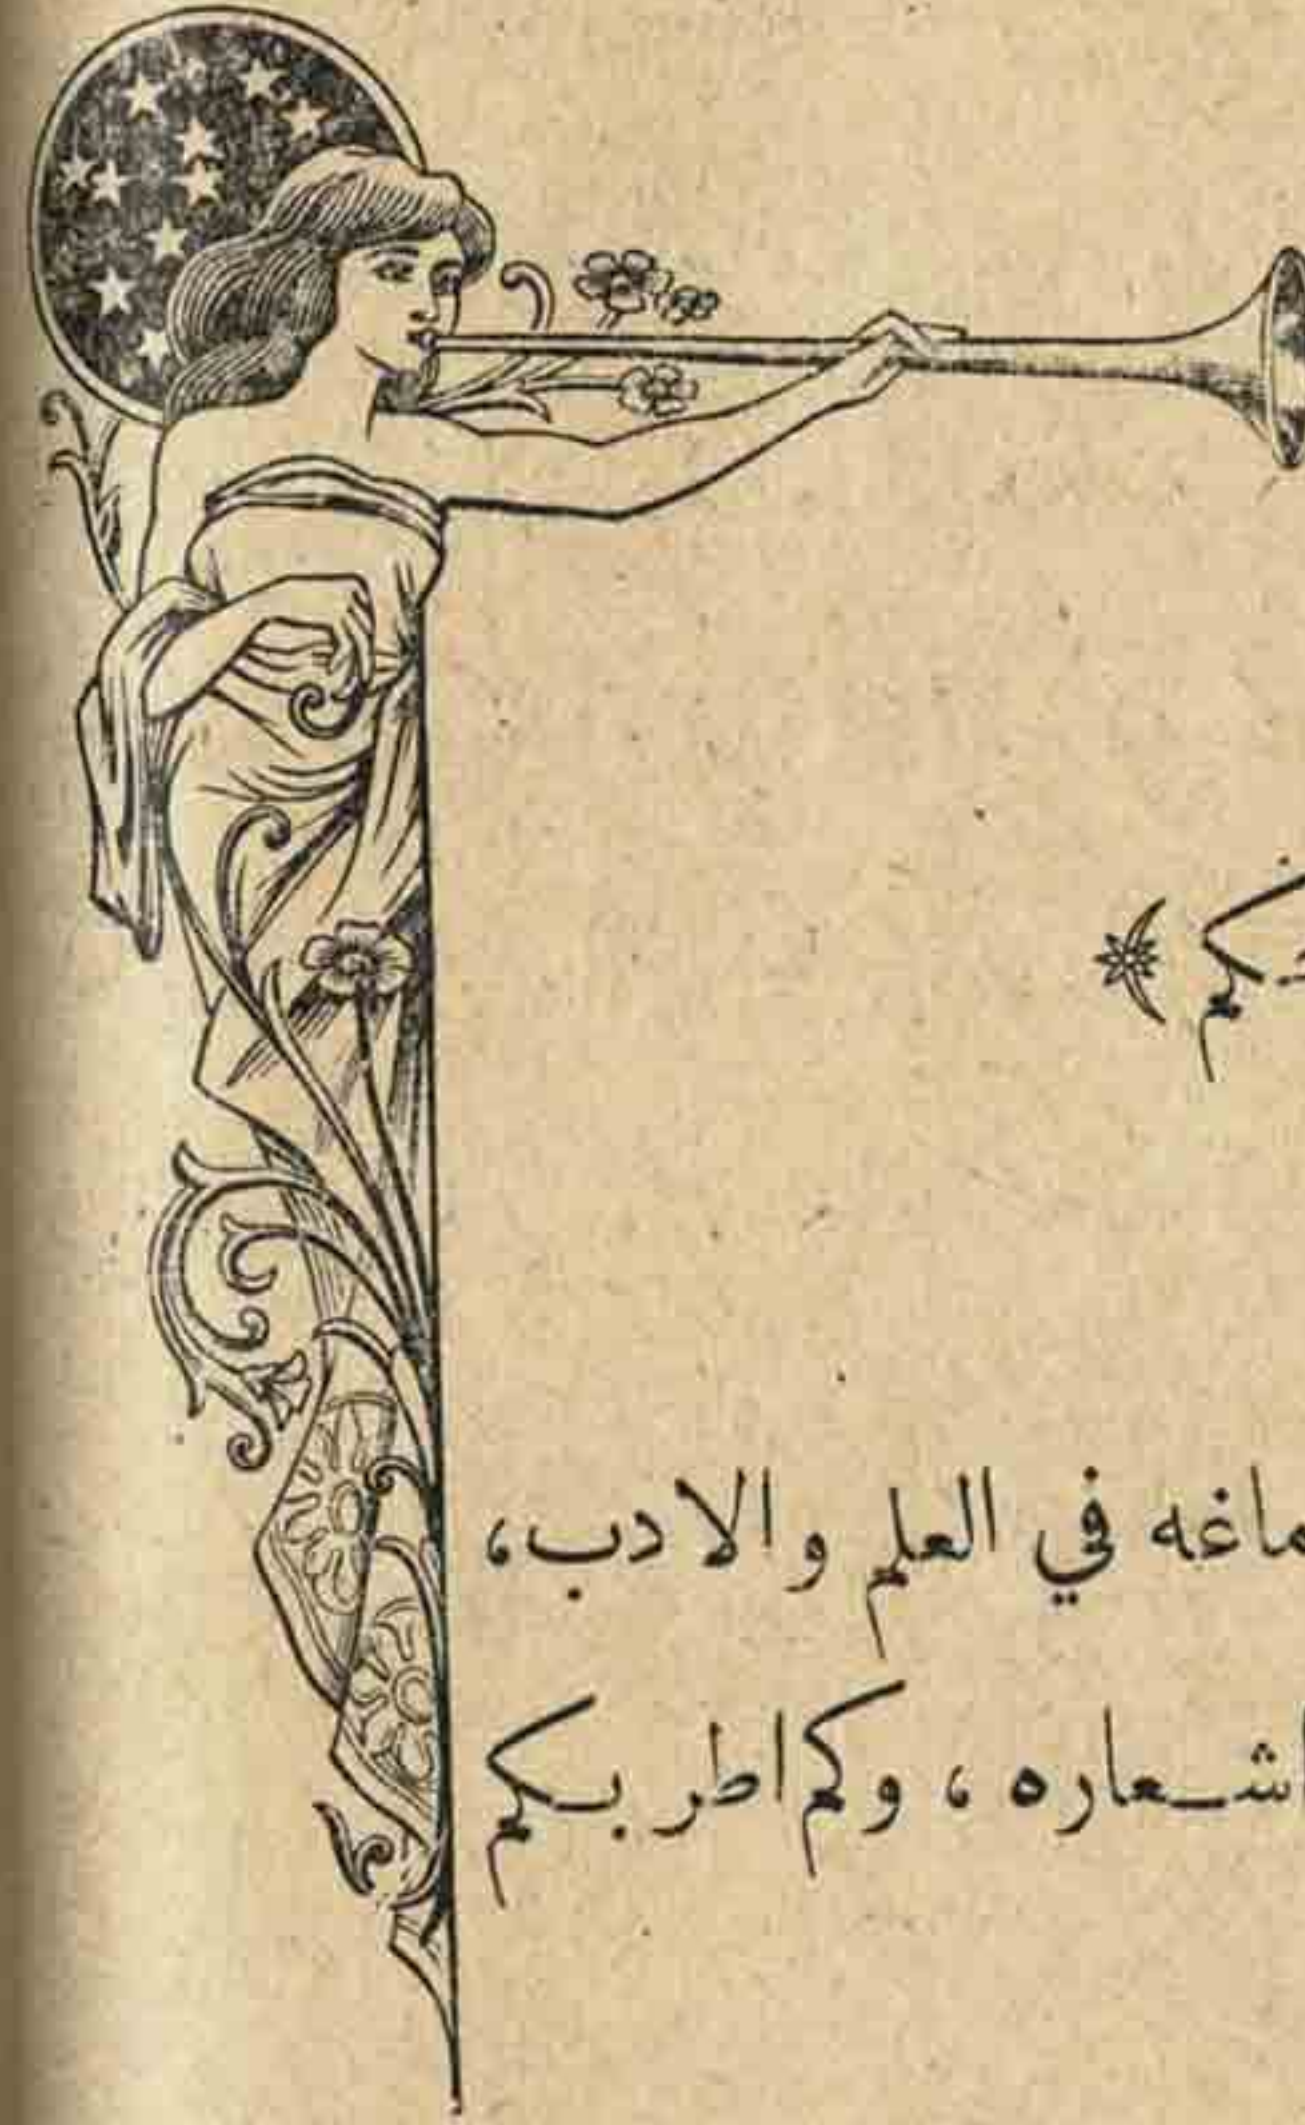 في العلم والادب،
اشعاره ، وكم اطربكم